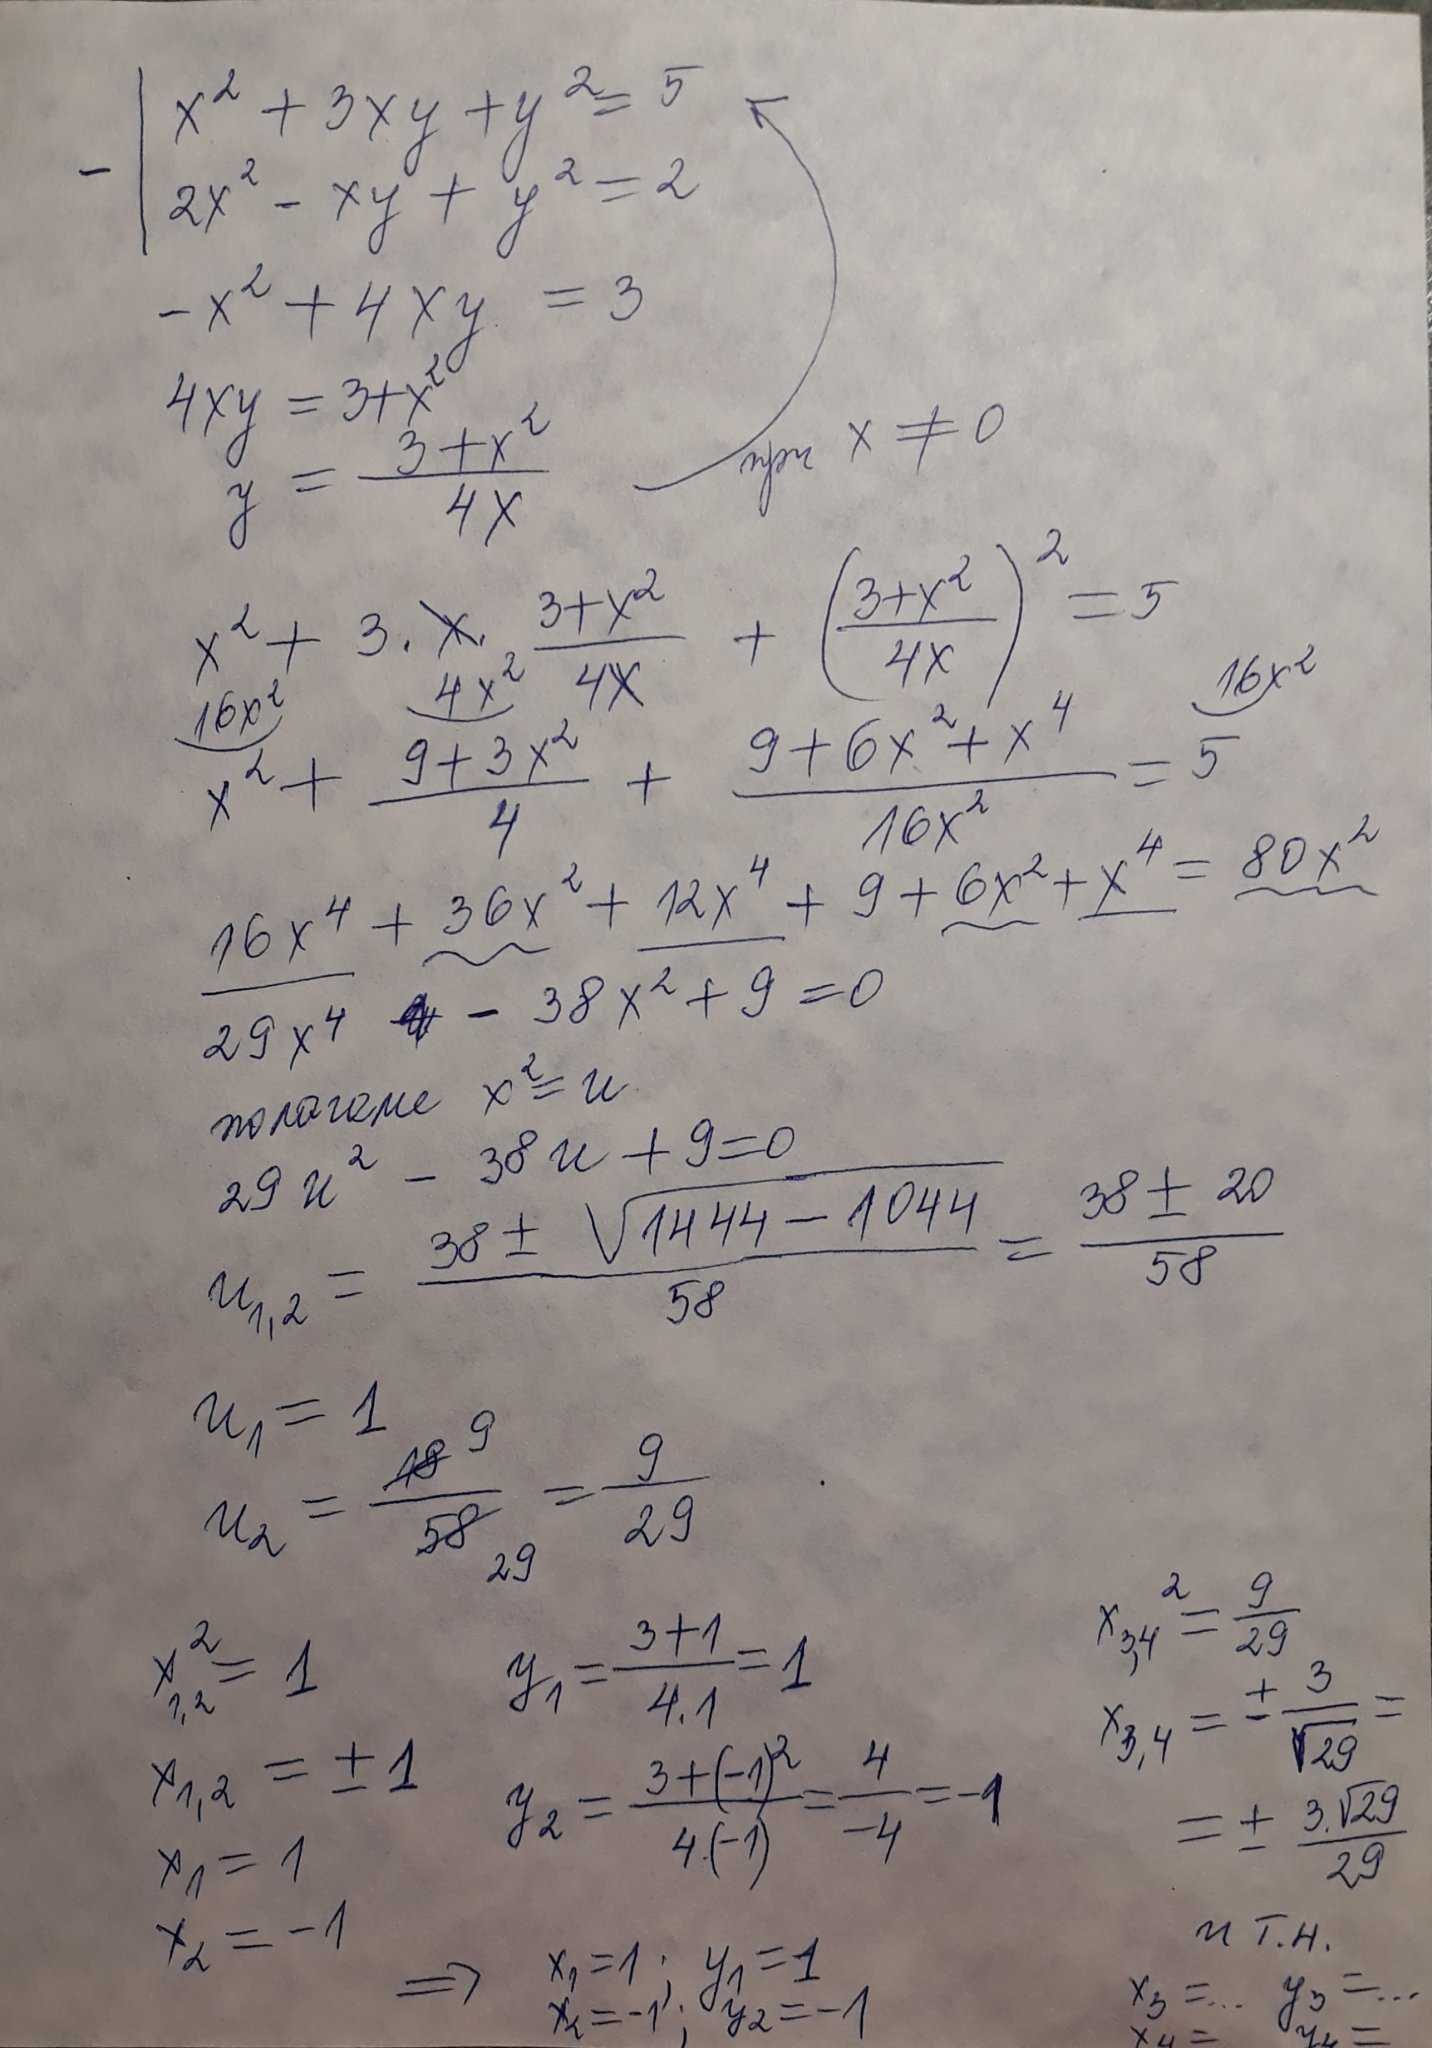 x² + 3xy + y² = 5
-
2x² - xy + y² = 2
-x² + 4xy = 3
4xy = 3+x²
y = (3+x²)/(4x) при x ≠ 0
x² + 3.x.(3+x²)/(4x) + ((3+x²)/(4x))² = 5
16x² 4x² 16x²
x² + (9+3x²)/4 + (9+6x²+x⁴)/(16x²) = 5
16x⁴ + 36x² + 12x⁴ + 9 + 6x² + x⁴ = 80x²
29x⁴ - 38x² + 9 = 0
полагаме x² = u
29u² - 38u + 9 = 0
u₁,₂ = (38 ± √(1444 - 1044))/58 = (38 ± 20)/58
u₁ = 1
u₂ = 18/58 = 9/29
9
29
x₁,₂² = 1
x₁,₂ = ±1
x₁ = 1
x₂ = -1
y₁ = (3+1)/(4.1) = 1
y₂ = (3+(-1)²)/(4.(-1)) = 4/-4 = -1
=> x₁ = 1 ; y₁ = 1
x₂ = -1 ; y₂ = -1
x₃,₄² = 9/29
x₃,₄ = ± 3/√29 =
= ± 3.√29/29
и т.н.
x₃ = ... y₃ = ...
x₄ = y₄ =